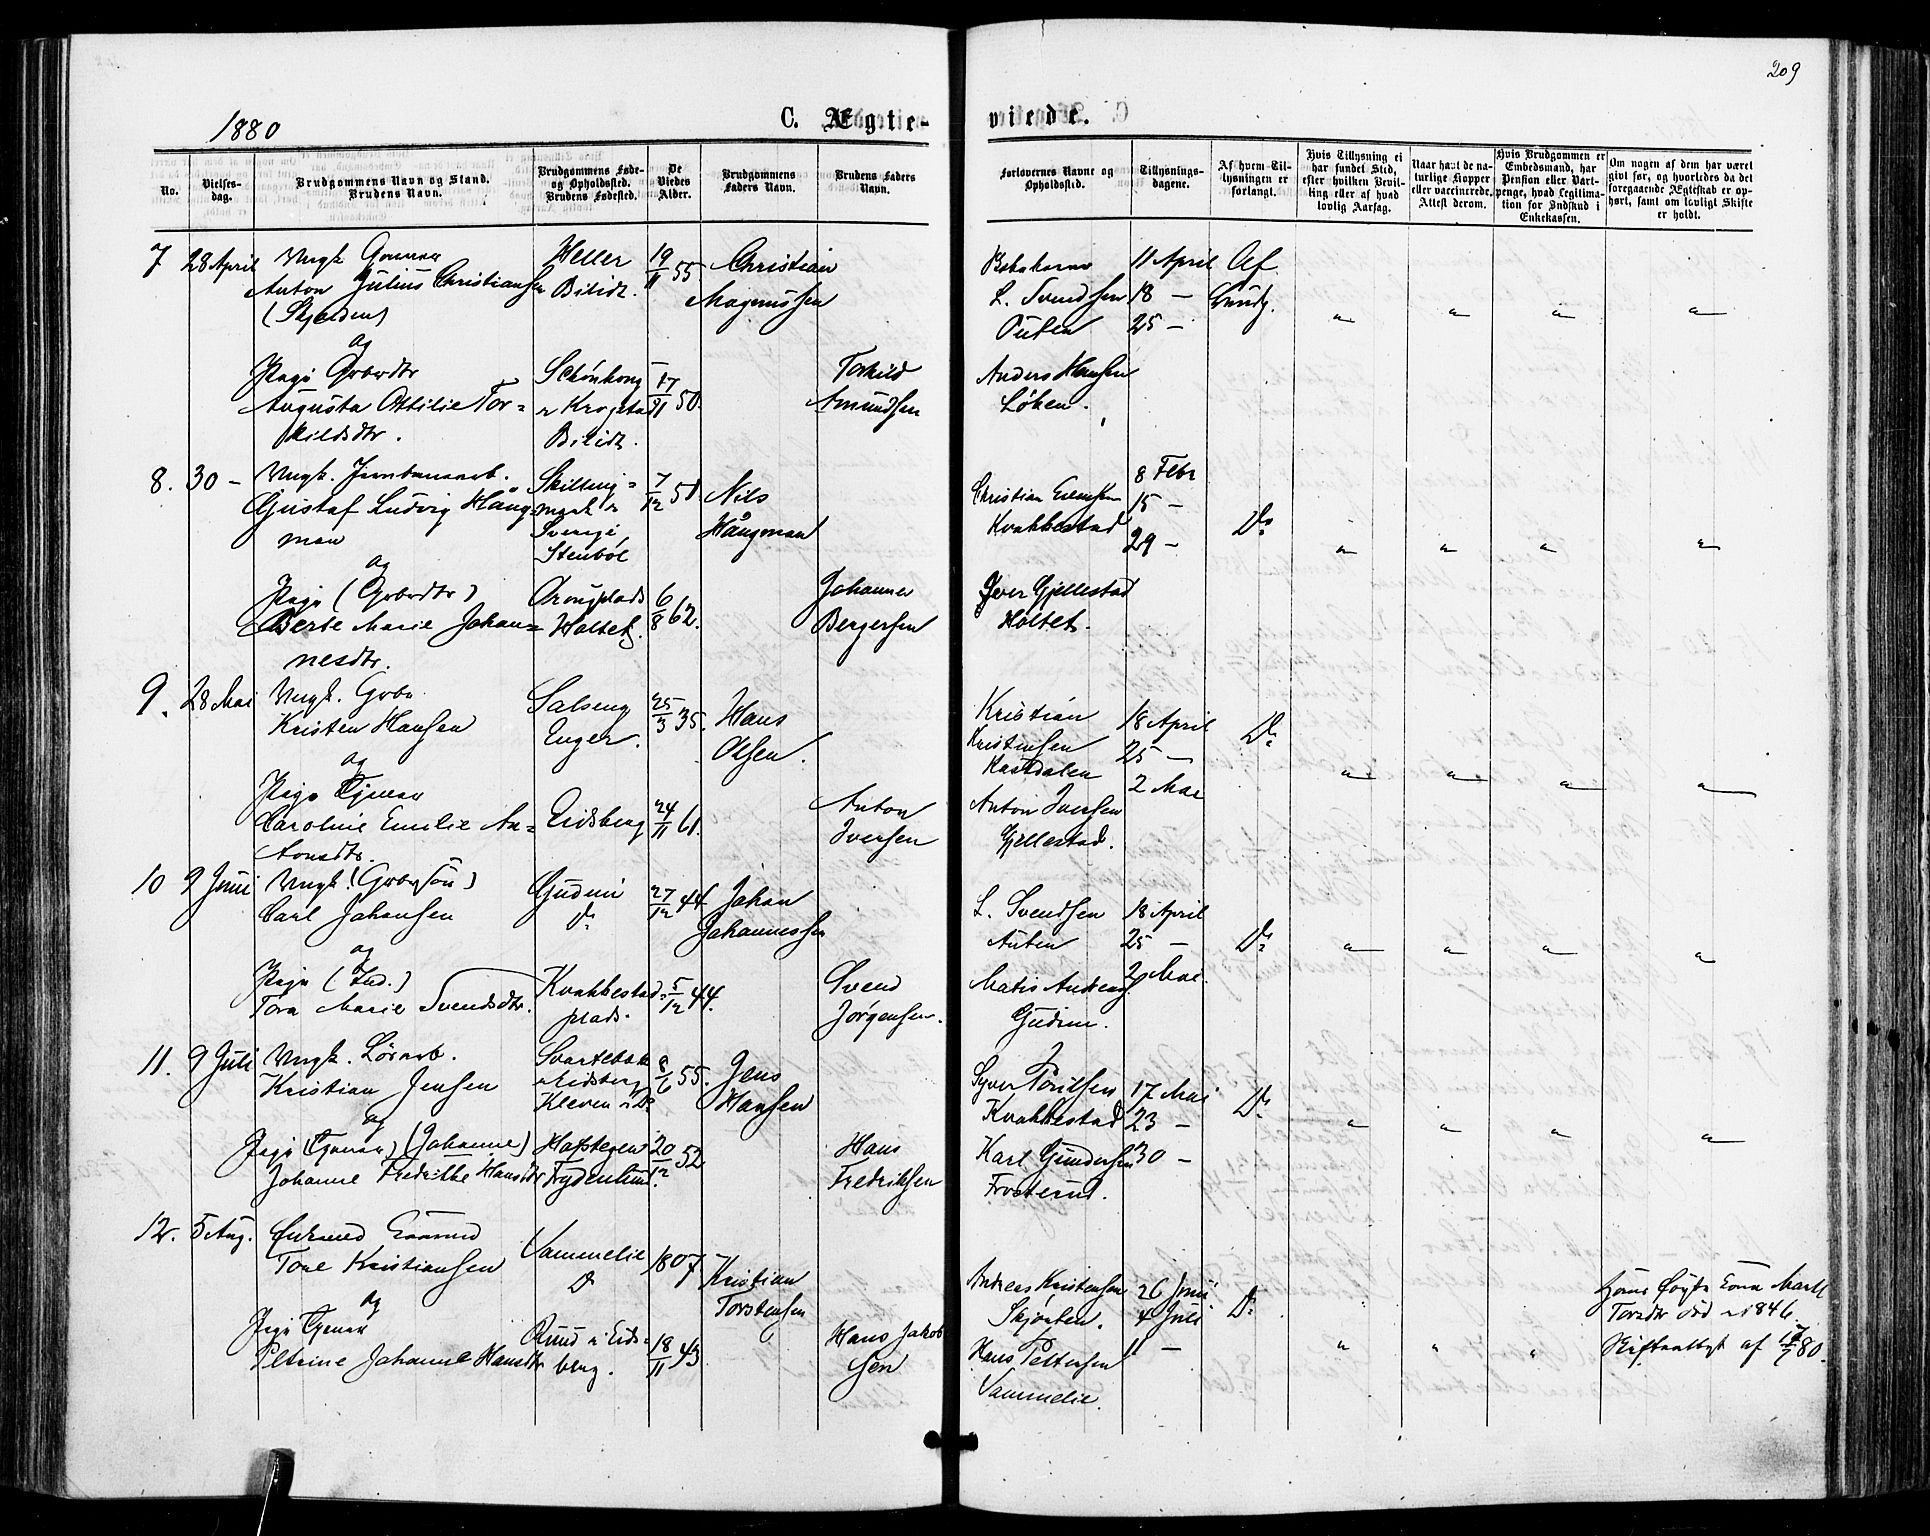 209
1880
C. Ægte-
viede.
No.
Vielses-
dag.
Brudgommens Navn og Stand.
Brudens Navn.
Brudgommens Føde-
og Opholdssted.
Brudens Fødested.
De
Viedes
Alder.
Brudgommens
Faders Navn.
Brudens Faders
Navn.
Forlovernes Navne og
Opholdssted.
Tillysnings-
dagene.
Af hvem Til-
lysningen er
forlangt.
Hvis Tillysning ei
har fundet Sted,
efter hvilken Bevil-
ling eller af hvad
lovlig Aarsag.
Naar havt de na-
turlige Kopper
eller vaccinerede.
Attest derom.
Hvis Brudgommen er
Embedsmand, har
Pension eller Vart-
penge, hvad Legitima-
tion for Indskud i
Enkekassen.
Om nogen af dem har været
gift før, og hvorledes da det
foregaaende Ægteskab er op-
hørt, samt om lovligt Skifte
er holdt.
7 28 April Ungk.
Anton Julius Christiansen
(Skjelden)
og
Pige Gbrdtr
Augusta Ottilie Tor-
kildsdtr.
Heller
Bilidt.
Schønhoug
Krogstad
Bilidt.
19/11 55
17/11 50.
Christian
Magnussen
Torkild
Amundsen
L. Svendsen
Outen
Anders Hansen
Løken.
11 April
18 —
25 —
Af
Brudg.
8. 30 — Ungk. Jernbanearb.
Gustaf Ludvig Häng-
man
og
Pige (Gbrdtr)
Berte Marie Johan-
nesdtr.
Skilling-
mark i
Sverige
Stenbøl
Holtet.
7/12 51
6/8 62.
Nils
Hängman
Johannes
Bergersen
Christian Evensen
Kvakkestad
Iver Gjellestad
Holtet.
8 Febr
15 —
29 —
Do
9. 28 Mai Ungk. Gbr.
Kristen Hansen
og
Pige Tjener
Caroline Emilie An-
tonsdtr.
Salseng
Enger.
Eidsberg
25/3 35.
24/11 61.
Hans
Olsen.
Anton
Iversen
Kristian
Kristensen
Kastdalen
Anton Iversen
Gjellestad.
18 April
25 —
2 Mai
Do
10 9 Juni Ungk. (Gbrsøn)
Carl Johansen
og
Pige (Ind.)
Tora Marie Svendsdtr.
Gudim
Do
Kvakkestad-
plads.
27/12 44
5/12 44.
Johan
Johannessen
Svend
Jørgensen.
L. Svendsen
Auten
Matis Andreas
Gudim.
18 April
25 —
2 Mai
Do
11. 9 Juli Ungk. Lørarb.
Kristian Jensen
og
Pige (Tjener) (Johanne)
Johanne Fredrikke Hansdtr
Svartebæk
i Eidsberg
Kleven i Do
Hafstegen
Frydenlund.
8/6 55.
20/12 52
Jens
Hansen
Hans
Fredriksen
Syver Poulsen
Kvakkestad
Karl Gundersen
Frosterud.
17 Mai
23 —
30 —
Do
12. 5 Aug. Enkemand
Tore Kristiansen
og
Pige Tjener
Petrine Johanne Hansdtr
Vammelie
Do
Ruud i Eids-
berg.
1807
18/11 43
Kristian
Torstensen
Hans Jakob
sen
Andreas Kristensen
Skjønten.
Hans Pettersen
Vammelie.
26 Juni
4 Juli
11 —
Do
Marte
Torsdtr død i 1846
Skifteattest af 17/7 80.